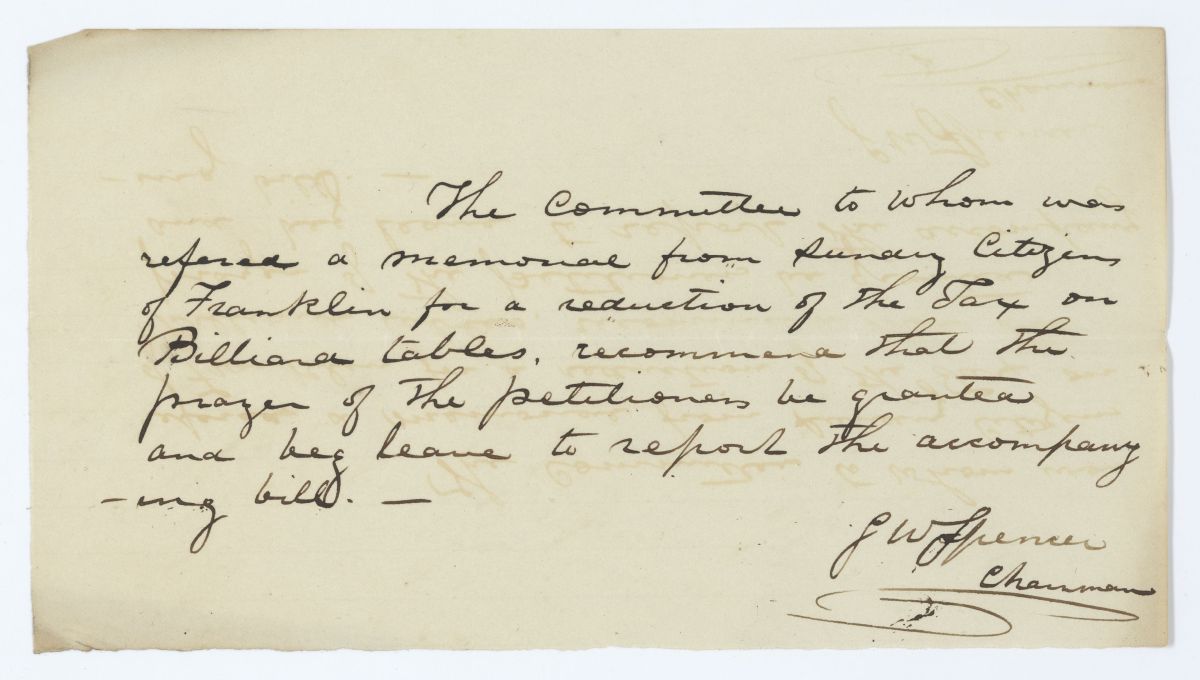 The Committee to whom was
refered a memorial from sundry Citizens
of Franklin for a reduction of the Tax on
Billiard tables, recommend that the
prayer of the petitioners be granted
and beg leave to report the accompany
-ing bill. —
G W Spencer
Chairman